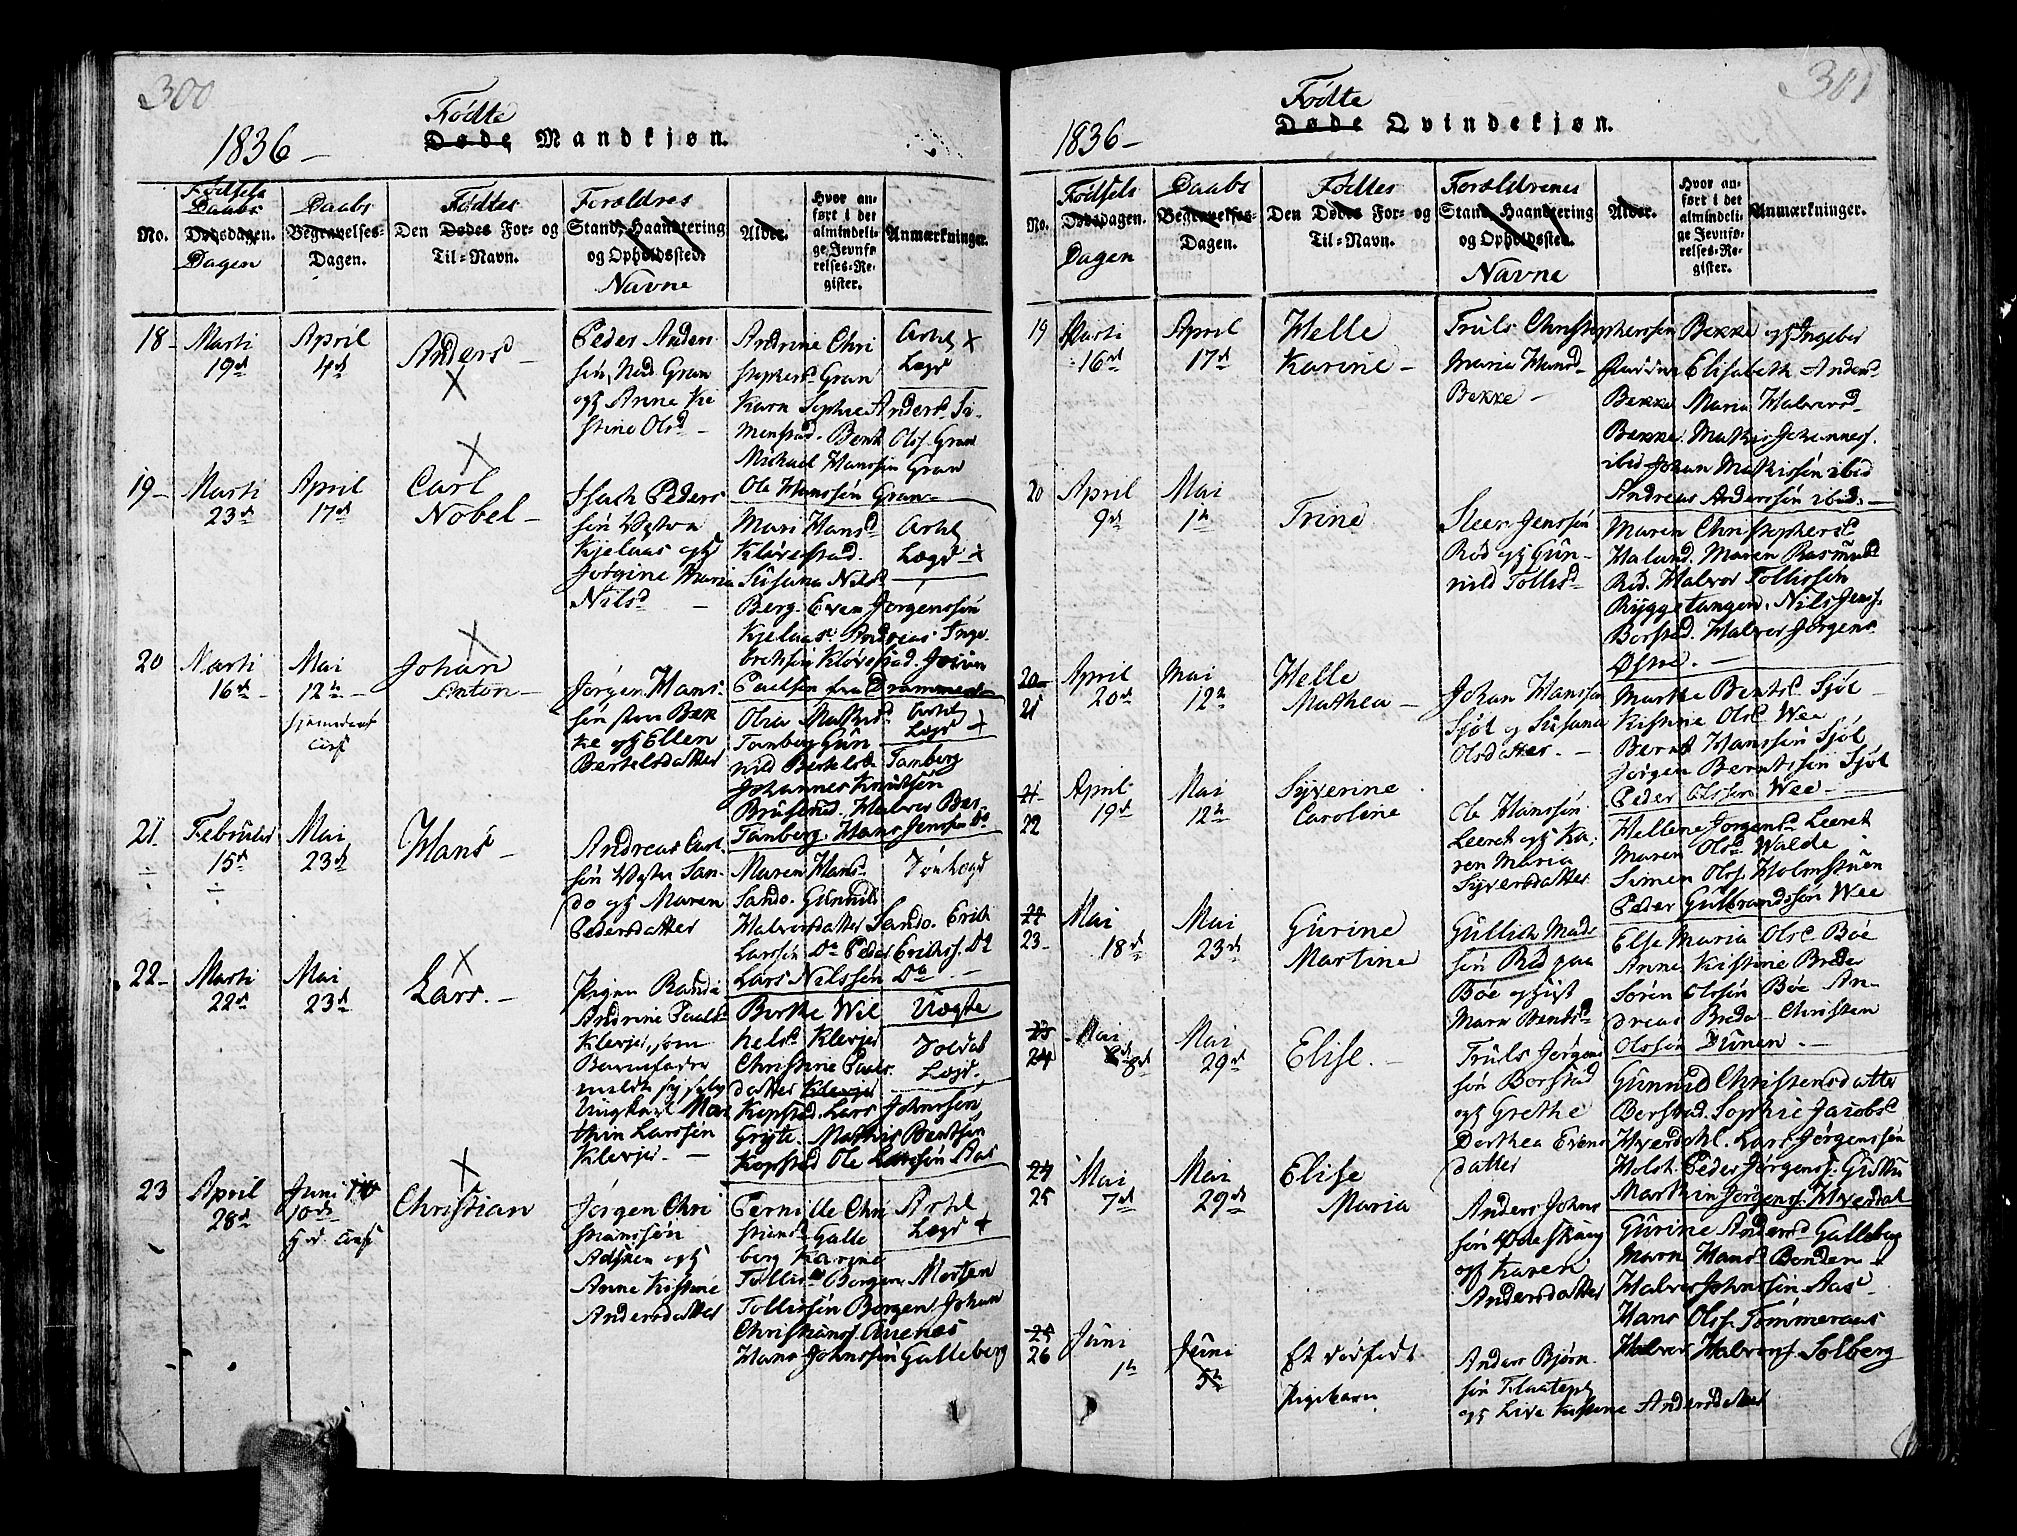 300
Fødte
1836 –
Døde Mandkjøn.
No.
Fødsels
Daabs
Dødsdagen.
Dagen
Daabs
Begravelses-
Dagen.
Fødtes
Den Dødes For- og
Til-Navn.
Forældres
Stand, Haandtering
og Opholdssted.
Navne
Alder.
Hvor an-
ført i det
almindeli-
ge Jevnfø-
relses-Re-
gister.
Anmærkninger.
18 –
Marti
19d
April
4d
Anders –
Peder Ander
sön, Gran
og Anne Ki
stine Olsd –
Andrine Chri
stophersd Gran
Karn Sophie Andersd Si-
menstad. Bent Olss. Gran
Michael Hanssön Gran
Ole Hanssön Gran –
Lægd
19 –
Marti
23d
April
17d
Carl
Nobel –
Isach Peders
sön
Kjelaas og
Jörgine Maria
Nilsd –
Mari Hansd
Klöverstad.
Susana Nilsd
Berg. Even Jörgenssön
Kjelaas. Andreas Inge
brektsen Klöverstad.
Paulsen fra Drammen
Lægd
20
Marti
16d –
Mai
12te –
Johan
Anton –
Jörgen Hans-
sön Bek
ke og Ellen
Bertelsdatter
Olea Mathisd
Tanberg Gun
nild Bertelsd Tanberg
Johannes Knudsen
Brüserud. Halvor
Tanberg. Hans Jenssön Do
Lægd
21
Februar
15d
÷
Mai
23d
Hans –
Andreas Carl
sön San-
do og Maren
Pedersdatter
Maren Hansd
Sando. Gunnild
Halvorsdatter Sando. Erik
Larssön Do Peder Erikss. Do
Lars Nilssön Do –
22 –
Marti
22d
Mai
23d
Lars. –
Pigen Randi
Andrine Paulsd
Klevjer, som
Barnefader
Ungkarl Mar
thin Larssön
Klevjer. –
Berthe Wil
helsd Klevjer
Christine Pauls
datter Klevjer
Kopstad. Lars Johnssön
Gryte. Mathis Bentsen
Kopstad Ole Larssön Aas
Uægte
Soldat
Lægd.
23
April
28d
Juni
Christian
Jörgen Chri
stianssön
og
Anne Kistine
Andersdatter
Pernille Chri
stiansd Galle
berg Karine
Tollisd Borgen. Morten
Tollissön Borgen. Johan
Christianss. Auenæs
Hans Johnssön Galleberg
Lægd
301
Fødte
1836 –
Døde Qvindekjøn.
No.
Fødsels
Dødsdagen.
Dagen
Daabs
Begravelses-
Dagen.
Fødtes
Den Dødes For- og
Til-Navn.
Forældrenes
Stand, Haandtering
og Opholdssted.
Navne
Alder.
Hvor an-
ført i det
almindeli-
ge Jevnfø-
relses-Re-
gister.
Anmærkninger.
19
Marti
16d
April
17d
Helle
Karine –
Truls Christopherssön Bekke og Ingeber
Maria Hansd
Bekke –
Elisabeth Andersd
Bekke Maria Halvorsd
Bekke. Mathis Johanness.
ibid Johan Mathissön ibid
Andreas Anderssön ibid. –
20
April
9d
Mai
1te
Trine
Steen Jenssön
Röd og Gun-
nild Tollisd
Maren Christophersd
Haland. Maren Rasmusd
Röd. Halvor Tollissön
Ryggetangen. Nils Jenss.
Borstad. Halvor Jörgens
20
21
April
20d
Mai
12te
Helle
Mathea –
Johan Hanssön
Sjöl og Susana
Olsdatter. –
Marthe Bentsd Sjöl
Kistine Olsd Wee
Bernt Hanssön Sjöl
Jörgen Berntssön Sjöl
Peder Olssön Wee –
21
22
April
19d
Mai
12te
Syverine
Caroline
Ole Hanssön
Leeret og Ka-
ren Maria
Syversdatter
Hellene Jörgensd Leeret
Maren Olsd Walde
Simen Olss. Holmstuen
Peder Gulbrandssön Wee
22
23 –
Mai
18d
Mai
23d
Gurine
Martine
Gullich Mads
sön Röd paa
Böe og Gift
Maren Bentsd
Else Maria Olsd Böe
Anne Kistine Breder
Sören Olssön Böe An-
dreas Breda – Christen
Olssön Dunen. –
23
24
Mai
8d
Mai
29d
Elise. –
Truls Jörgens
sön Borstad
og Grethe
Dorthea Evens
datter
Gunnild Christensdatter
Berstad. Sophie Jacobsd
Hverdahl. Lars Jörgenssön
Holst. Peder Jörgenss.
Marthin Jörgenss. Hverdal
24
25
Mai
7d
Mai
29d
Elise
Maria
Anders Johns
sön Ødeskoug
og Karen
Andersdatter
Gurine Andersd Galleberg
Marn Hansd Benden
Halvor Johnssön Aas
Hans Olss. Tömmeraas
Halvor Halvorss. Solberg
25
26
Juni
1te
Juni
5te
Et dödfödt
Pigebarn
Anders Björn
sön Flaatep
og Live Kistine Andersdatter